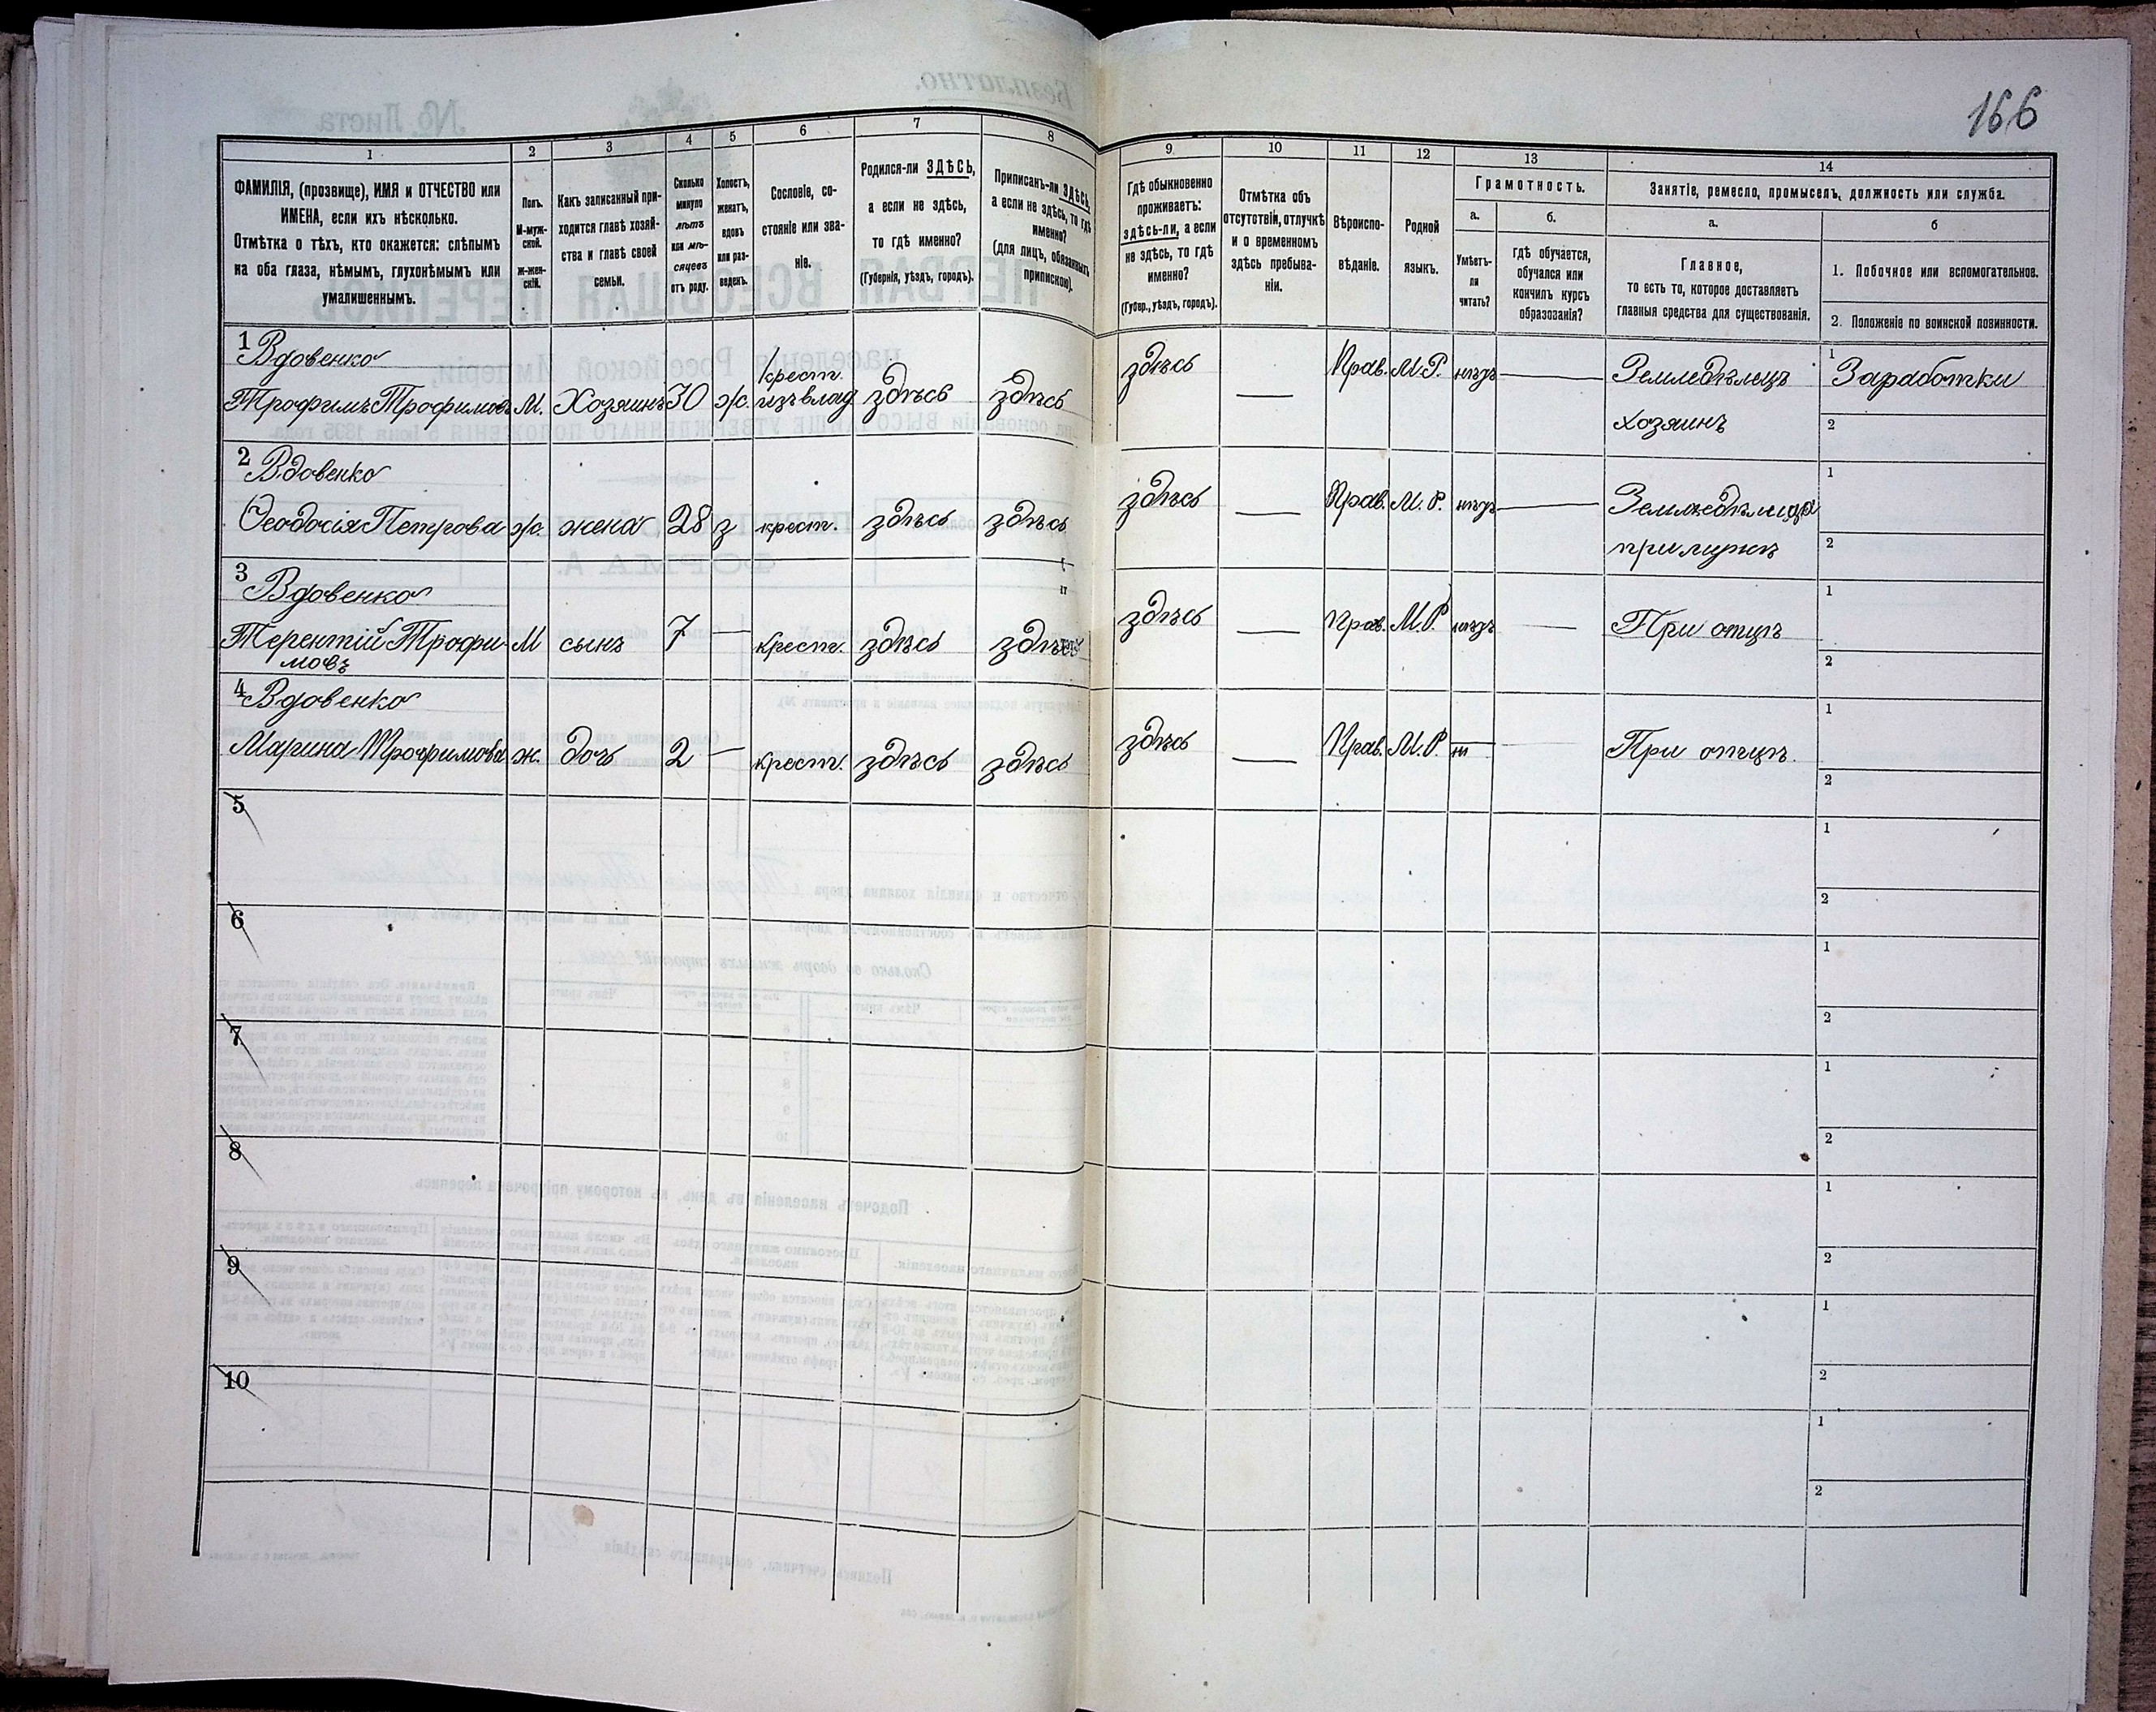 166
1
2
3
4
5
6
7
8
9
10
11
12
13
14
ФАМИЛІЯ, (прозвище), ИМЯ и ОТЧЕСТВО или
ИМЕНА, если ихъ нѣсколько.
Отмѣтка о тѣхъ, кто окажется: слѣпымъ
на оба глаза, нѣмымъ, глухонѣмымъ или
умалишеннымъ.
Полъ.
М-муж-
ской.
ж-жен-
скій.
Какъ записанный при-
ходится главѣ хозяй-
ства и главѣ своей
семьи.
Сколько
минуло
лѣтъ
или мѣ-
сяцевъ
отъ роду.
Холостъ,
женатъ,
вдовъ
или раз-
веденъ.
Сословіе, со-
стояніе или зва-
ніе.
Родился-ли ЗДѢСЬ,
а если не здѣсь,
то гдѣ именно?
(Губернія, уѣздъ, городъ).
Приписанъ-ли ЗДѢСЬ,
а если не здѣсь, то гдѣ
именно?
(для лицъ, обязанныхъ
припискою).
Гдѣ обыкновенно
проживаетъ:
здѣсь-ли, а если
не здѣсь, то гдѣ
именно?
(Губер., уѣздъ, городъ).
Отмѣтка объ
отсутствіи, отлучкѣ
и о временномъ
здѣсь пребыва-
ніи.
Вѣроиспо-
вѣданіе.
Родной
языкъ.
Грамотность.
а.
Умѣетъ-
ли
читать?
б.
гдѣ обучается,
обучался или
кончилъ курсъ
образованія?
Занятіе, ремесло, промыселъ, должность или служба.
а.
Главное,
то есть то, которое доставляетъ
главныя средства для существованія.
б
1. Побочное или вспомогательное.
2. Положеніе по воинской повинности.
1 Вдовенко
Трофимъ Трофимовъ М. Хозяинъ 30 ж. крест. изъ влад здѣсь здѣсь здѣсь — Прав. М.Р. нѣтъ — Земледѣлецъ 1 Заработки
хозяинъ 2
2 Вдовенко
Ѳеодосія Петрова ж. жена 28 з крест. здѣсь здѣсь здѣсь — Прав. М.Р. нѣтъ — Земледѣлица 1
при мужѣ 2
3 Вдовенко
Терентій Трофи- М сынъ 7 — крест. здѣсь здѣсь здѣсь — Прав. М.Р. нѣтъ — При отцѣ 1
мовъ 2
4 Вдовенко
Марина Трофимова ж. дочь 2 — крест. здѣсь здѣсь здѣсь — Прав. М.Р. — При отцѣ. 1
2
5 1
2
6 1
2
7 1
2
8 1
2
9 1
2
10 1
2